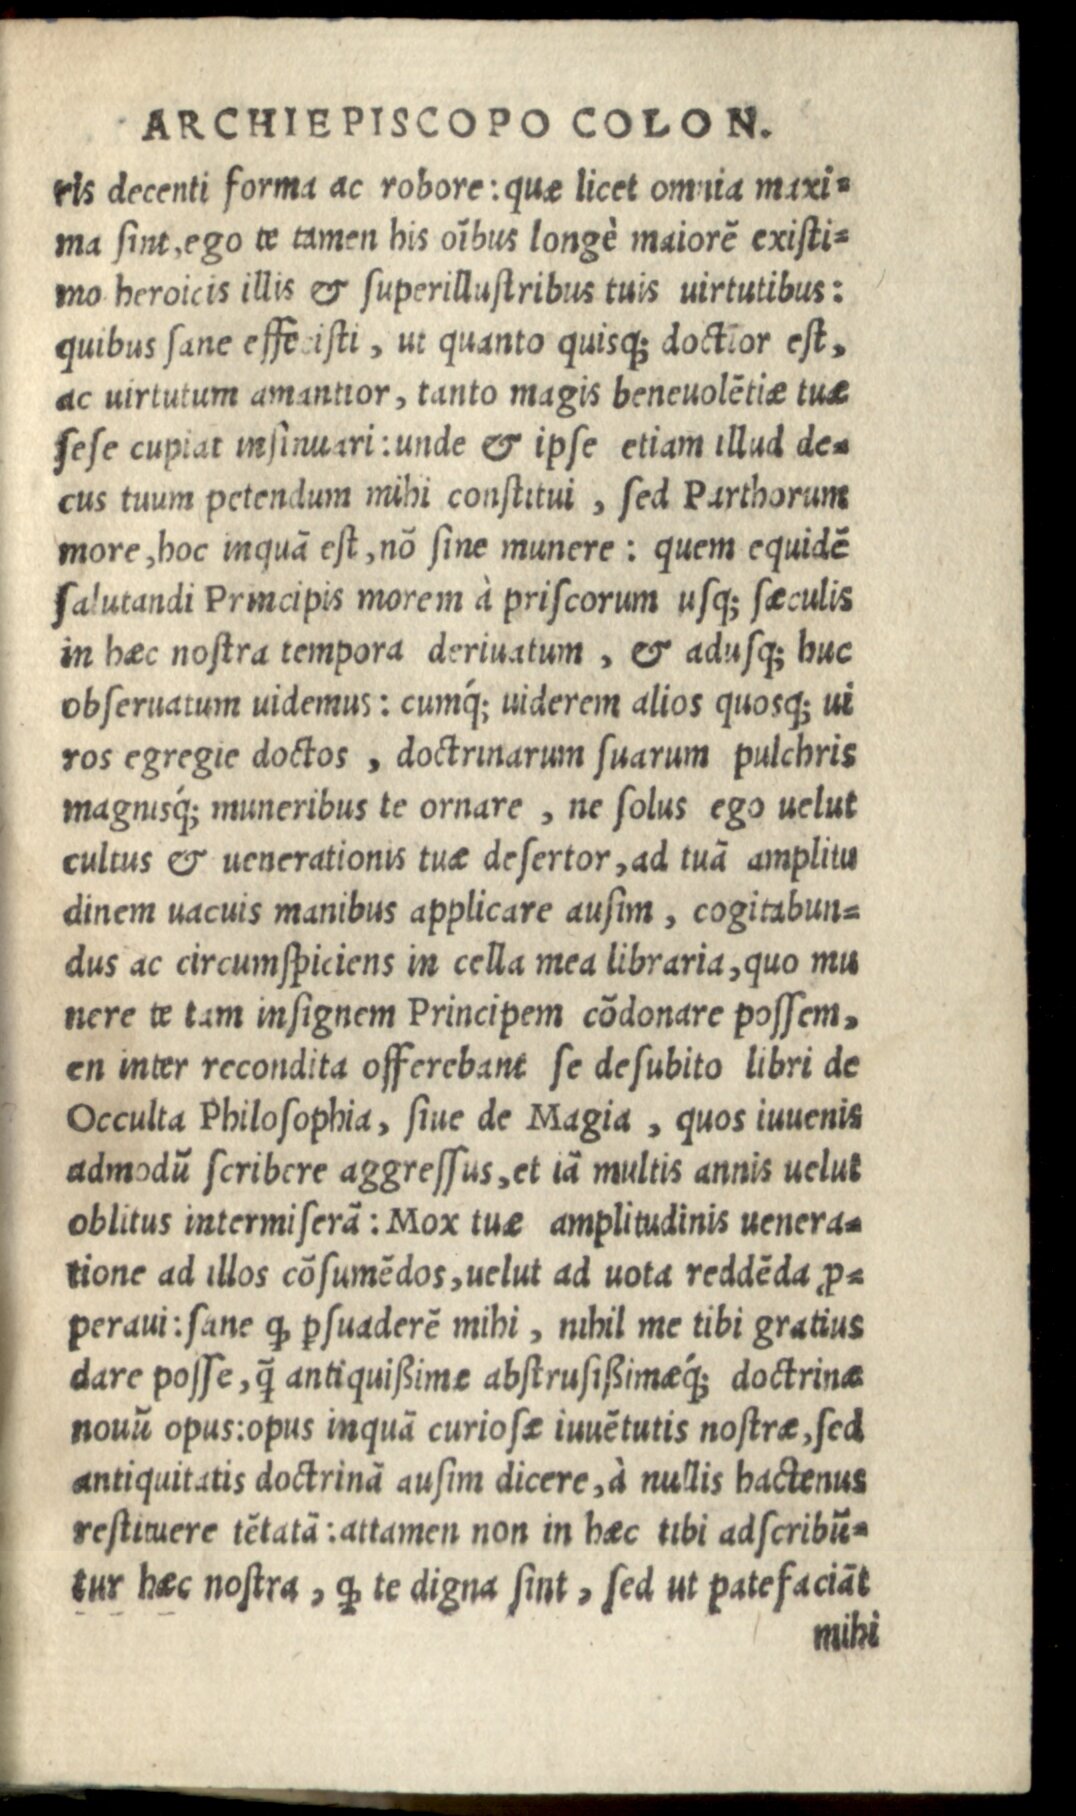 ARCHIEPISCOPO COLON.
ris decenti forma ac robore: quæ licet omnia maxi⸗
ma ſint, ego te tamen his oĩbus longè maiorẽ exiſti⸗
mo heroicis illis & ſuperilluſtribus tuis uirtutibus:
quibus ſane effeciſti, ut quanto quisq; doctior eſt,
ac uirtutum amantior, tanto magis beneuolẽtiæ tuæ
ſeſe cupiat inſinuari: unde & ipſe etiam illud de⸗
cus tuum petendum mihi conſtitui, ſed Parthorum
more, hoc inquã eſt, nõ ſine munere: quem equidẽ
ſalutandi Principis morem à priſcorum uſq; ſæculis
in hæc noſtra tempora deriuatum, & aduſq; huc
obſeruatum uidemus: cumq́; uiderem alios quosq; ui
ros egregie doctos, doctrinarum ſuarum pulchris
magnisq́; muneribus te ornare, ne ſolus ego uelut
cultus & uenerationis tuæ deſertor, ad tuã amplitu
dinem uacuis manibus applicare auſim, cogitabun⸗
dus ac circumſpiciens in cella mea libraria, quo mu
nere te tam inſignem Principem cõdonare poſſem,
en inter recondita offerebant ſe deſubito libri de
Occulta Philoſophia, ſiue de Magia, quos iuuenis
admodũ ſcribere aggreſſus, et iã multis annis uelut
oblitus intermiſerã: Mox tuæ amplitudinis uenera⸗
tione ad illos cõſumẽdos, uelut ad uota reddẽda ꝓ⸗
peraui: ſane ꝙ ꝑſuaderẽ mihi, nihil me tibi gratius
dare poſſe, q̃ antiquißimæ abſtruſißimæq́; doctrinæ
nouũ opus: opus inquã curioſæ iuuẽtutis noſtræ, ſed
antiquitatis doctrinã auſim dicere, à nullis hactenus
reſtituere tẽtatã: attamen non in hæc tibi adſcribũ⸗
tur hæc noſtra, ꝙ te digna ſint, ſed ut patefaciãt
mihi